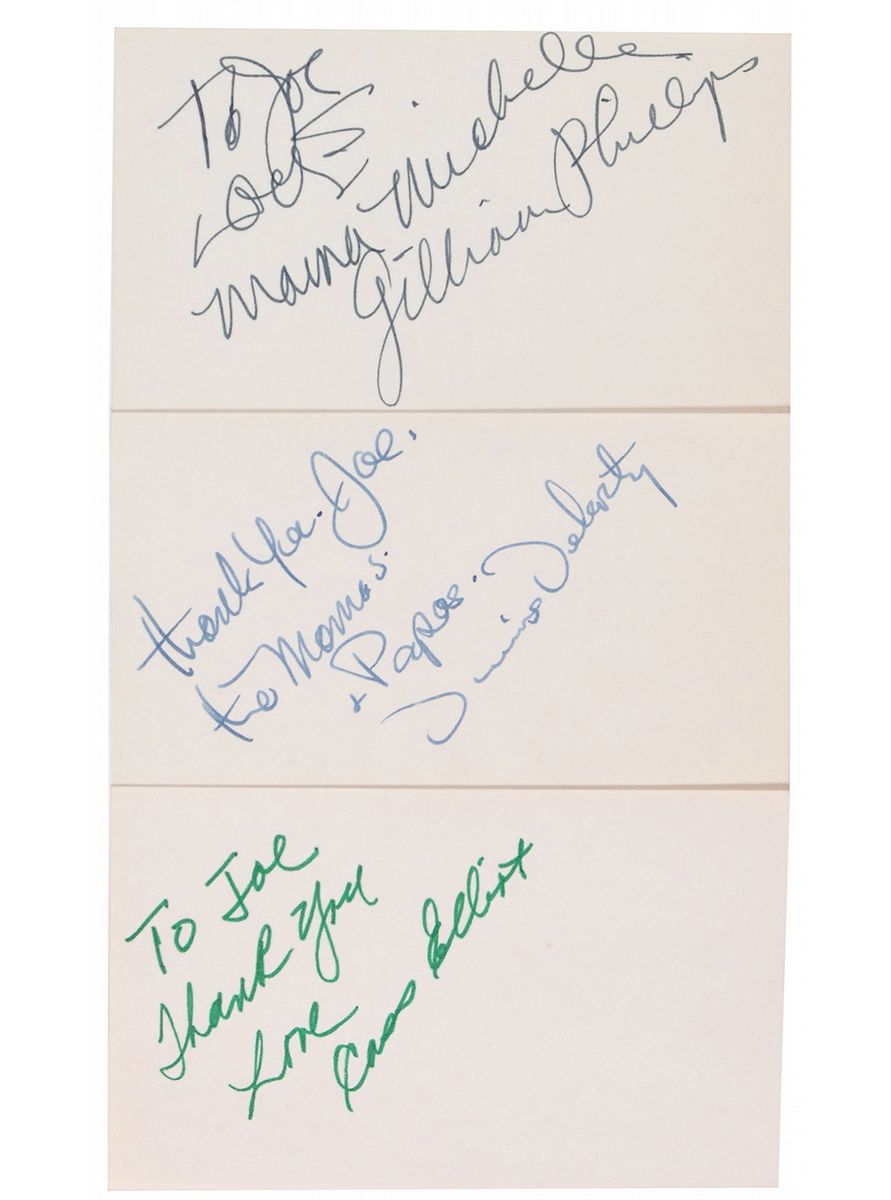 To Joe
Love
Mama Michelle
Gilliam Phillips
thank you. Joe.
the Mamas.
+ Papas.
Dennis Doherty
To Joe
Thank You
Love
Cass Elliot